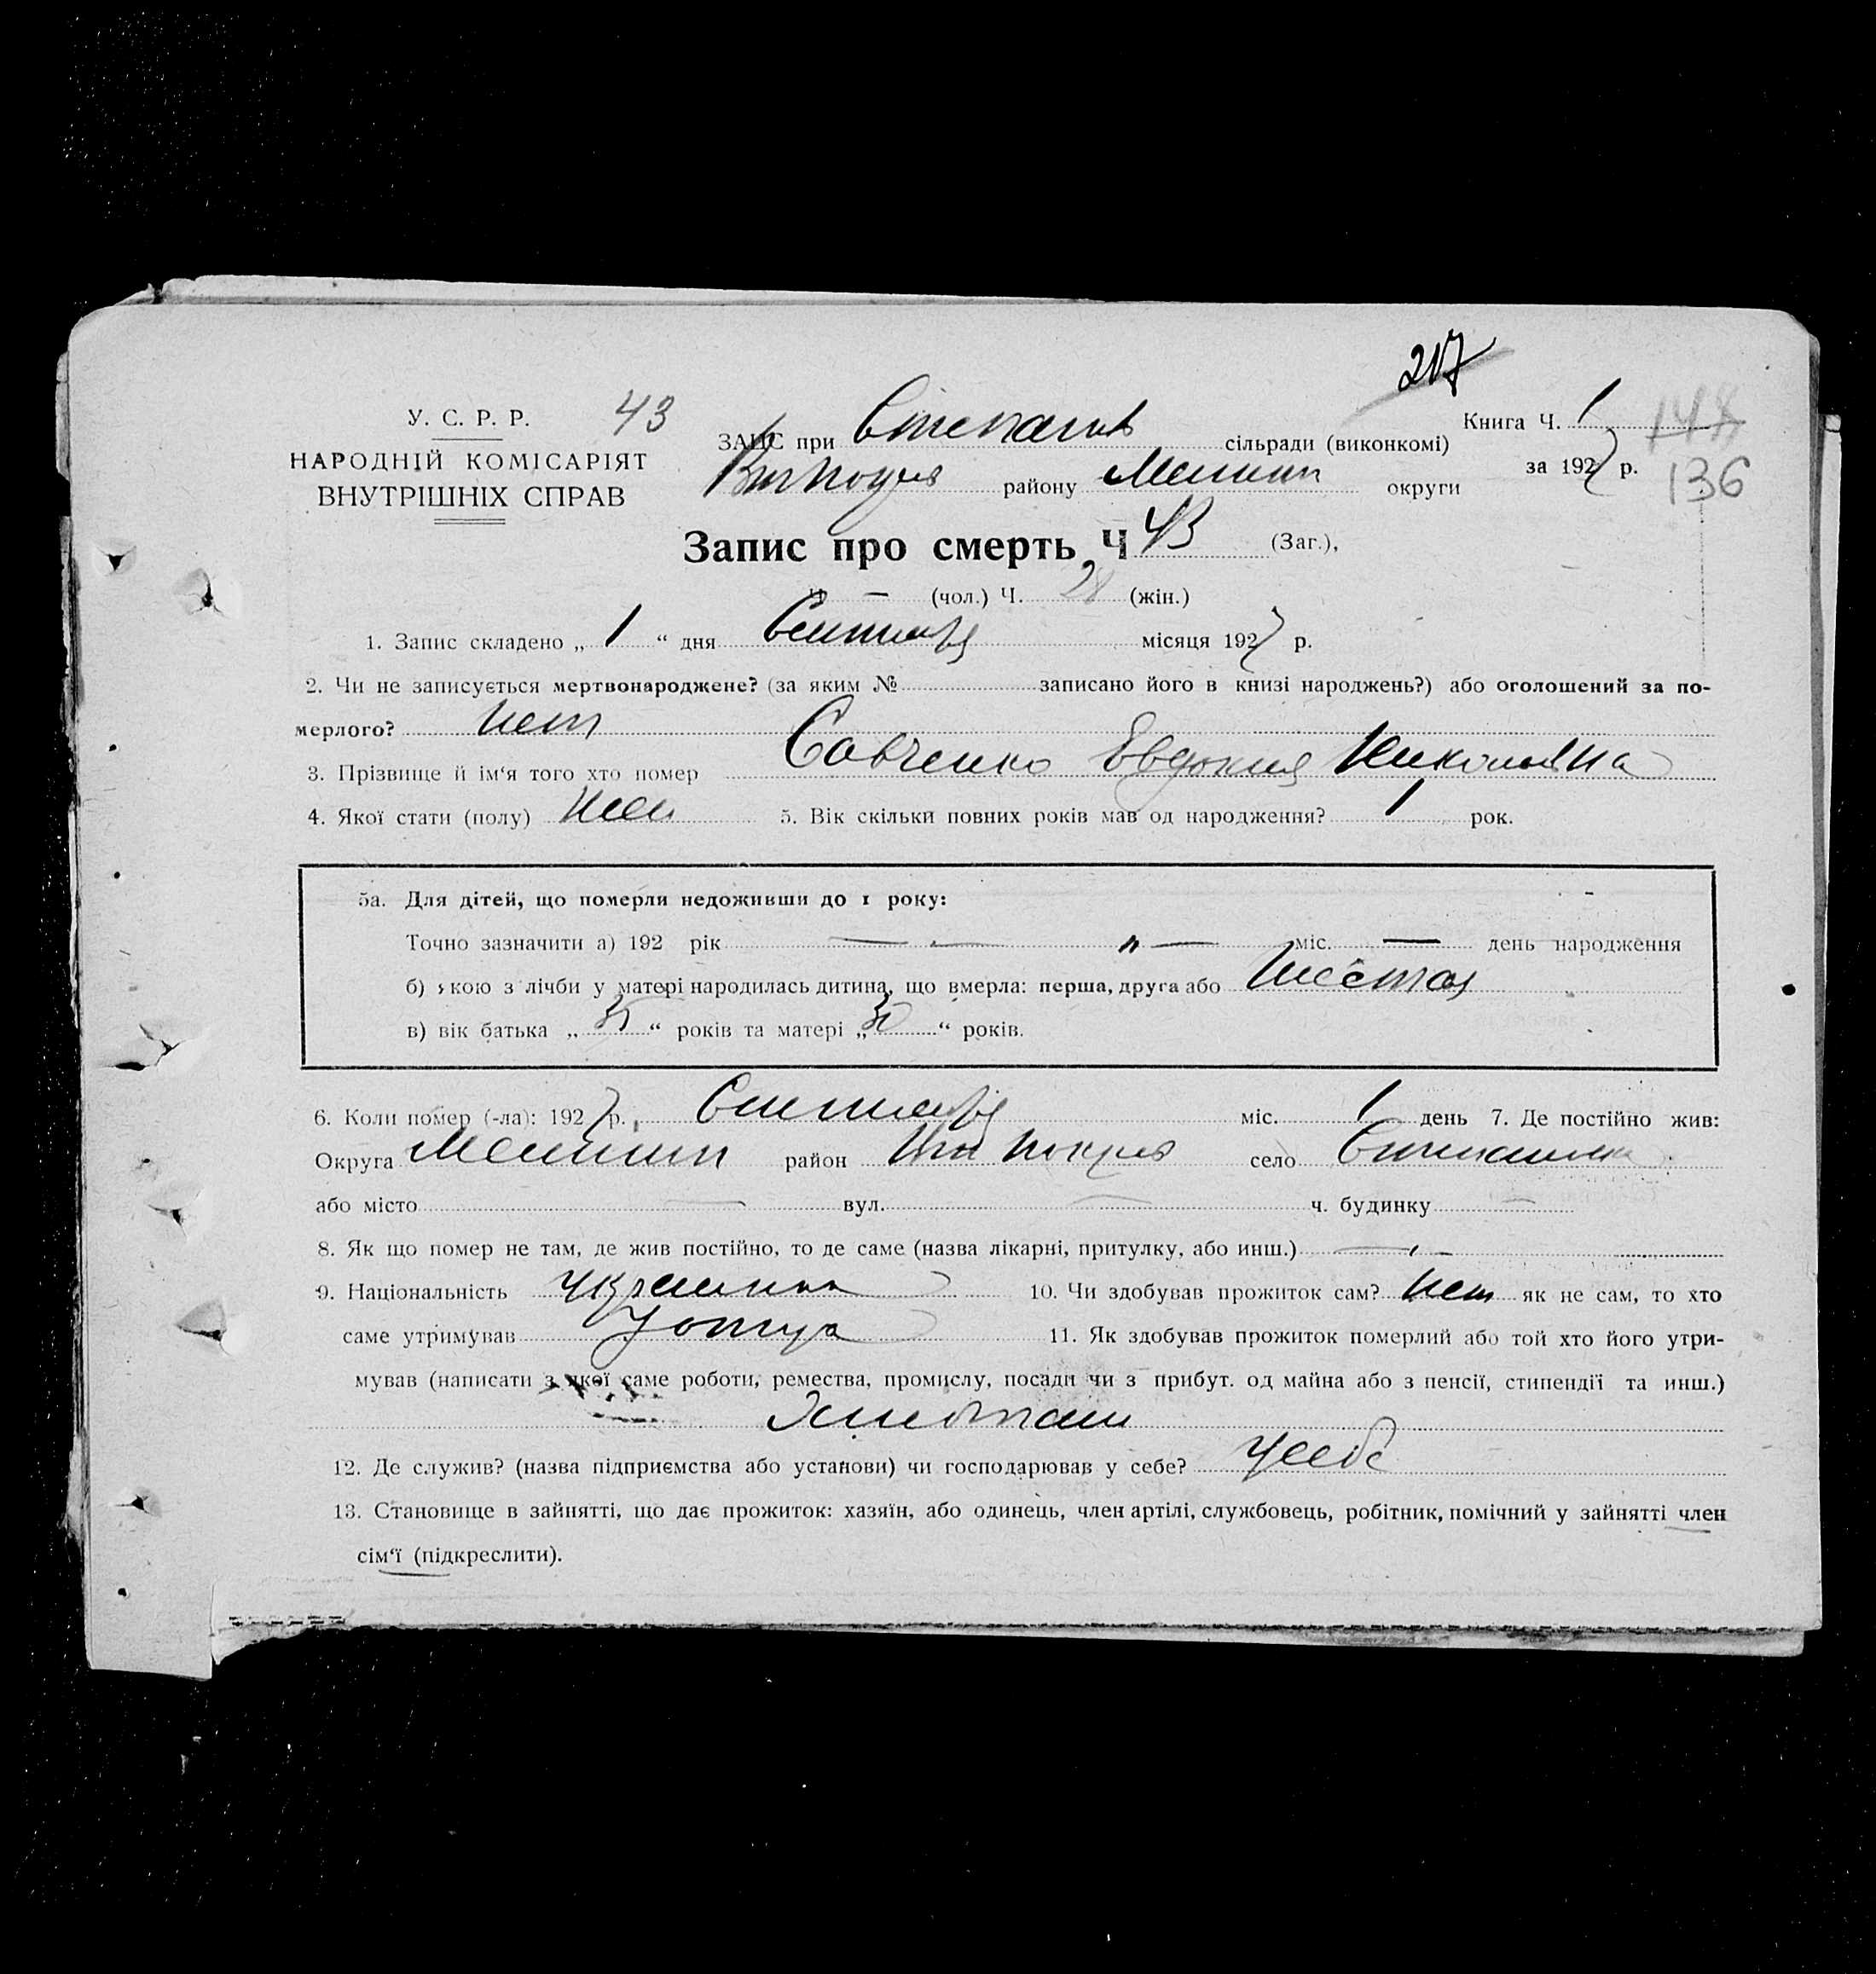 217
У. С. Р. Р. 43
НАРОДНІЙ КОМІСАРІЯТ
ВНУТРІШНІХ СПРАВ
ЗАГС при сільради (виконкомі) Книга Ч. 1
району округи за 1927 р. 136
Запис про смерть Ч 43 (Заг.),
Ч — (чол.) Ч. 28 (жін.)
1. Запис складено „ 1 “ дня Сентября місяця 1927 р.
2. Чи не записується мертвонароджене? (за яким № записано його в книзі народжень?) або оголошений за по-
мерлого? нет
3. Прізвище й ім‘я того хто помер Савченко Евдокия Николаевна
4. Якої стати (полу) жен 5. Вік скільки повних років мав од народження? 1 рок.
5а. Для дітей, що померли недоживши до 1 року:
Точно зазначити а) 192 рік — — „ — міс. — день народження
б) якою з лічби у матері народилась дитина, що вмерла: перша, друга або шестая
в) вік батька „ “ років та матері „ “ років.
6. Коли помер (-ла): 1927 р. Сентября міс. 1 день 7. Де постійно жив:
Округа район село
або місто — вул. — ч. будинку —
8. Як що помер не там, де жив постійно, то де саме (назва лікарні, притулку, або инш.) —
9. Національність украинка 10. Чи здобував прожиток сам? нет як не сам, то хто
саме утримував У отца 11. Як здобував прожиток померлий або той хто його утри-
мував (написати з якої саме роботи, ремества, промислу, посади чи з прибут. од майна або з пенсії, стипендії та инш.)
12. Де служив? (назва підприємства або установи) чи господарював у себе? у себе
13. Становище в зайнятті, що дає прожиток: хазяїн, або одинець, член артілі, службовець, робітник, помічний у зайнятті член
сім‘ї (підкреслити).